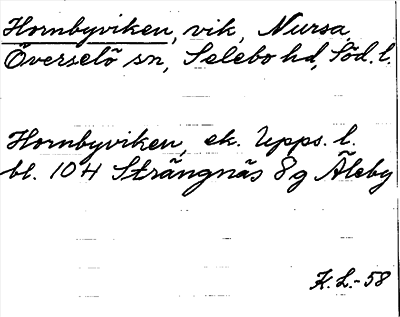 Hornbyviken, vik, Nursa,
Överselö sn, Selebo hd, Söd. l.
Hornbyviken, ek. Upps. l.
bl. 104 Strängnäs 8g Åleby
K.L.-58